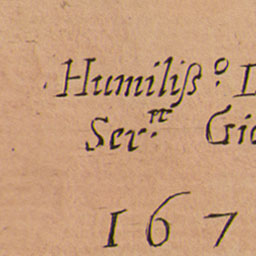 Humiliß.º D
Ser.re Gio
167